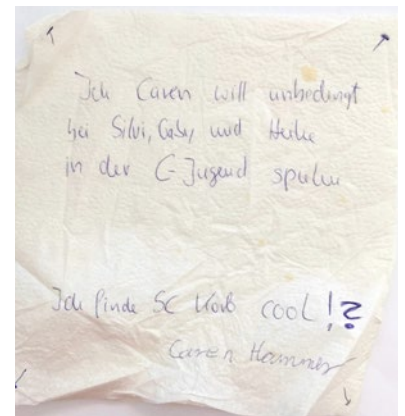 Ich Caren will unbedingt
bei Silvi, Gaby und Heike
in der C-Jugend spielen
Ich finde SC Korb COOL!?
Caren Hammer